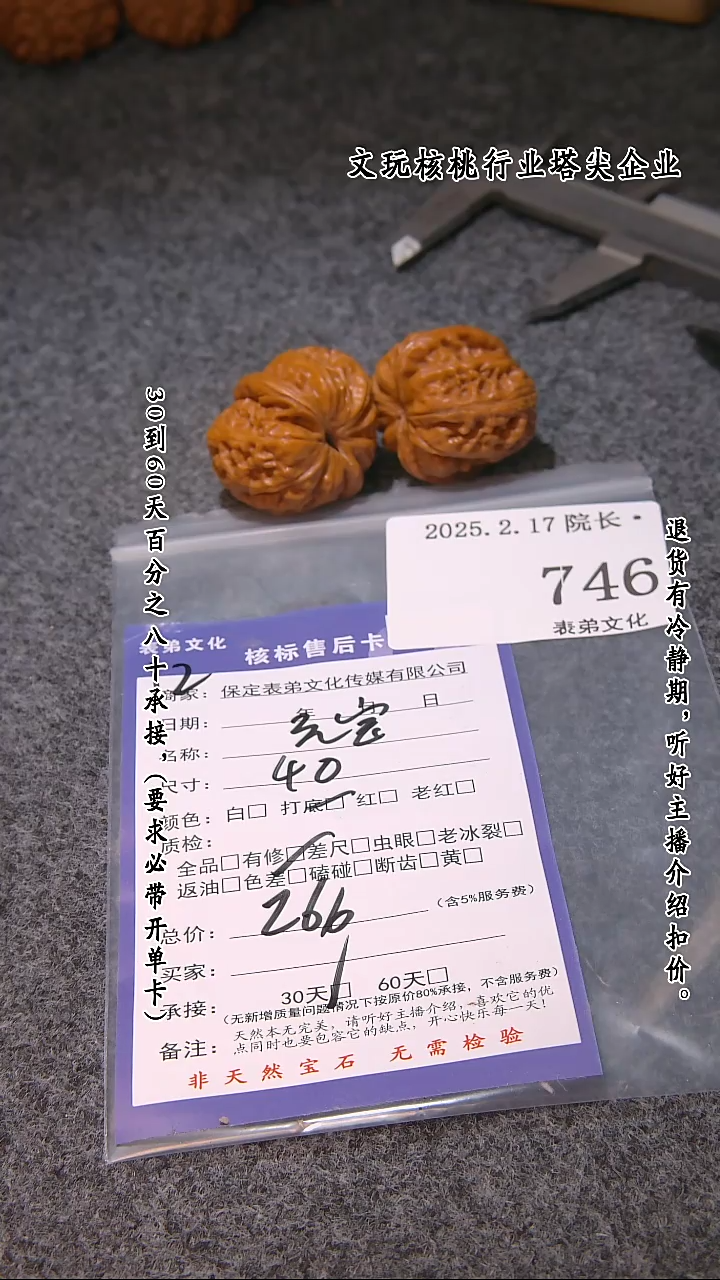 文玩核桃行业塔尖企业
30到60天百分之八十承接，(要求必带开单卡)
退货有冷静期，听好主播介绍扣价。
2025.2.17 院长·
746
表弟文化
表弟文化 核标售后卡
2
商家：保定表弟文化传媒有限公司
日期： 年 日
名称：
尺寸：40
颜色：白□ 打底□ 红□ 老红□
质检：
全品□有修□差尺□虫眼□老冰裂□
返油□色差□磕碰□断齿□黄□
总价：266 (含5%服务费)
买家：
承接：30天□ 60天□
(无新增质量问题情况下按原价80%承接，不含服务费)
备注：天然本无完美，请听好主播介绍，喜欢它的优
点同时也要包容它的缺点，开心快乐每一天！
非天然宝石 无需检验